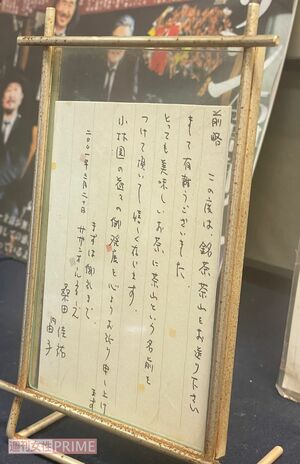 前略
この度は、銘茶茶山をお送り下さい
まして有難うございました。
とっても美味しいお茶に茶山という名前を
つけて頂いて嬉しく存じます。
小林園の益々の御発展を心よりお祈り申し上げ
ます
まずは御礼まで。
二〇〇一年
サザンオールスターズ
桑田佳祐
由子
週刊女性PRIME